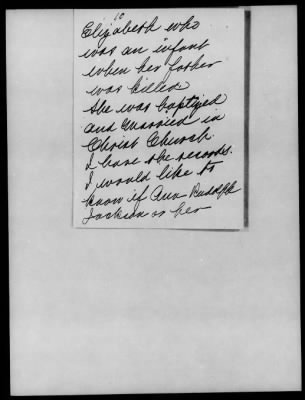 10
Elizabeth who
was an infant
when her father
was killed
She was baptized
and Married in
Christ Church.
I have the records.
I would like to
know if Ann Rudolph
Jackson or her